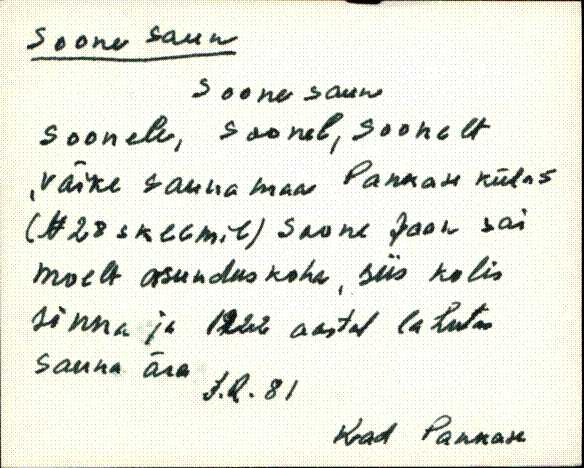 Soone saun
Soone saun
Soonele, Soonel, Soonelt
väike saunamaa Pankase külas
(#28 skeemil) Soone Jaan sai
moelt asunduskoha, siis kolis
sinna ja 1922 aastal lahutas
sauna ära
J.R. 81
Kad Pankase